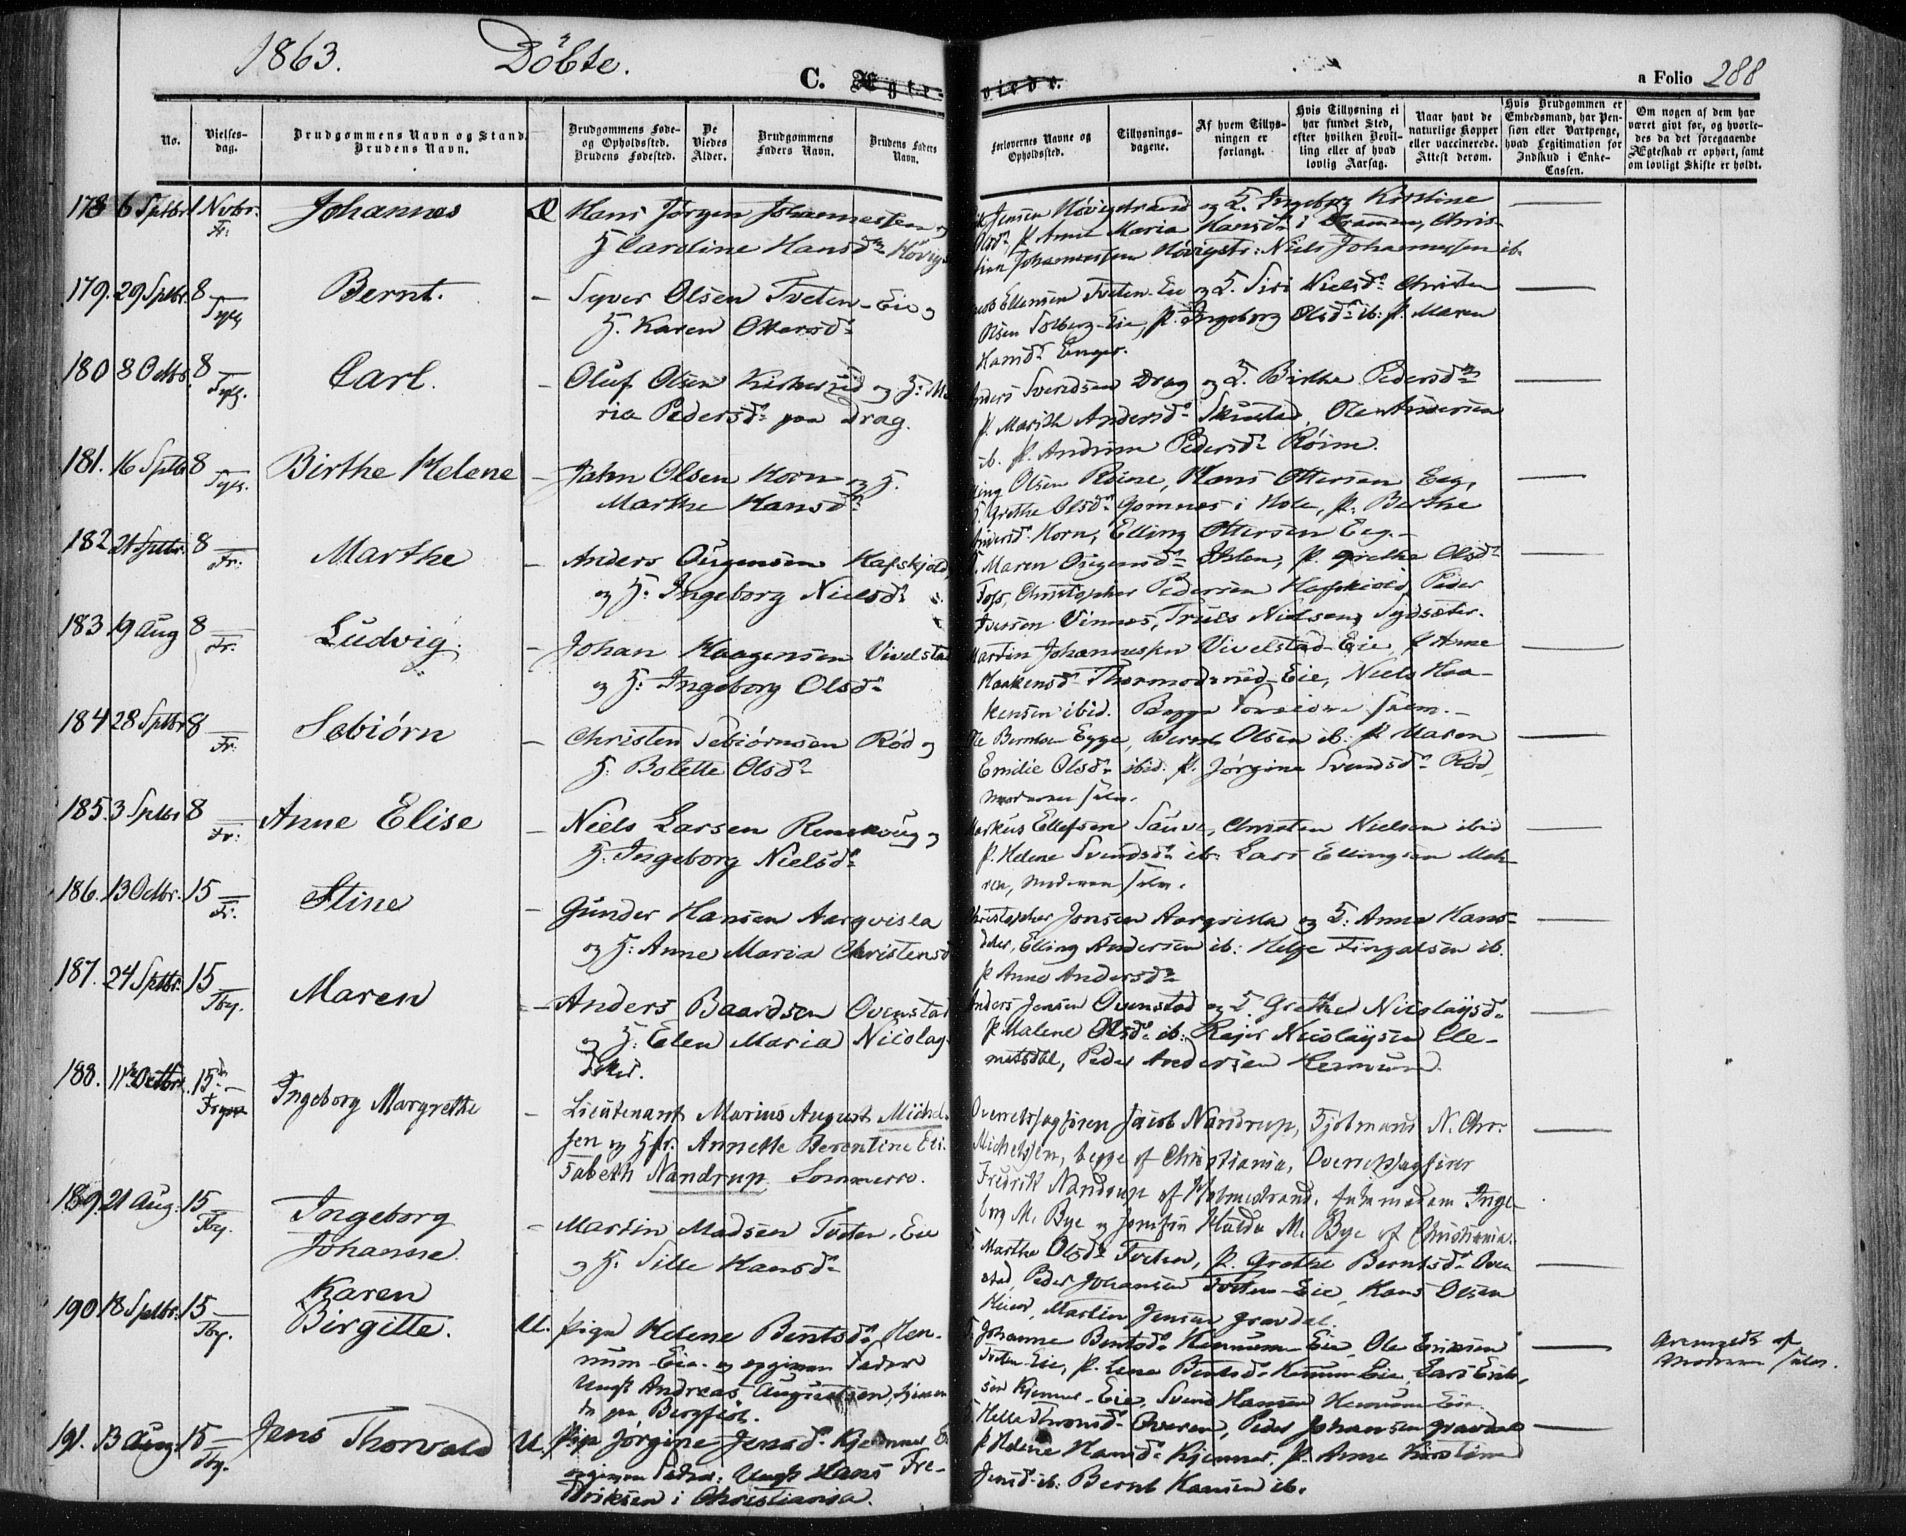 1863. Døbte. C. Ægte- viede. a Folio 288
No.
Vielses-
dag.
Brudgommens Navn og Stand.
Brudens Navn.
Brudgommens Føde-
og Opholdssted.
Brudens Fødested.
De
Viedes
Alder.
Brudgommens
Faders Navn.
Brudens Faders
Navn.
Forlovernes Navne og
Opholdssted.
Tillysnings-
dagene.
Af hvem Tillys-
ningen er
forlangt.
Hvis Tillysning ei
har fundet Sted,
efter hvilken Bevil-
ling eller af hvad
lovlig Aarsag.
Naar havt de
naturlige Kopper
eller vaccinerede.
Attest derom.
Hvis Brudgommen er
Embedsmand, har Pen-
sion eller Vartpenge,
hvad Legitimation for
Indskud i Enke-
Cassen.
Om nogen af dem har
været gift før, og hvorle-
des da det foregaaende
Ægteskab er ophørt, samt
om lovligt Skifte er holdt.
178 6 Sptbr 1 Nvbr. Fr: Johannes Æ Hans Jørgen Johannessen og
H Caroline Hansd:
Jensen Høvigstrand og H. Ingeborg Kirstine
Olsd: P. Anne Maria Hansd: i Drammen, Chris-
tian Johannessen Høvigstr: Niels Johannessen ib.
179. 29 Sptbr. 8 Sylg Bernt. – Syver Olsen Tveten-Eie og
H. Karen Ottersd:
Ellensen Tveten-Eie og H. Siri Nielsd: Christen
Olsen Solberg-Eie, P. Ingeborg Olsd: ib: P. Maren
Hansd: Enger.
180 8 Octbr. 8 Sylg. Carl. – Oluf Olsen Kirkerud og H: Ma
ria Pedersd: paa Drag.
Anders Svendsen Drag og H. Birthe Pedersd:
P. Marith Andersd: Skustad, Ole Andersen
ib. P. Andrine Pedersd: Røine.
181. 16 Sptbr 8 Sylg. Birthe Helene – John Olsen Horn og H.
Marthe Hansd:
Olsen Røine, Hans Ottersen Eeg,
P. Grethe Olsd: Gomnes i Hole, P. Berthe
Andersd: Horn, Elling Ottersen Eeg.
182 21 Sptbr. 8 Fr: Marthe – Anders Ougensen Hafskjold,
og H: Ingeborg Nielsd:
Maren Ougensd: P. Grethe Olsd:
Foss, Christopher Pedersen Hafskiold, Peder
Iversen Vinnes, Truls Nielsen Sydsæter.
183 19 Aug 8 Fr. Ludvig. – Johan Haagensen Vivelstad
og H: Ingeborg Olsd:
Martin Johannessen Vivelstad-Eie, P. Anne
Haakensd: Thormodsrud-Eie, Niels Haa-
kensen ibid. Begge
184 28 Sptbr 8 Fr: Sebiørn – Christen Sebiørnsen Rød og
H: Bolette Olsd:
Ole Berntsen Egge, Bernt Olsen ib: P. Maren
Emilie Olsd: ibid. P. Jørgine Svendsd: Rød,
Moderen selv.
185 3 Sptbr 8 Fr: Anne Elise – Niels Larsen Renskoug og
H: Ingeborg Nielsd:
Markus Ellefsen Sauve, Christen Nielsen ibid
P. Helene Svendsd: ib: Lars Ellingsen Moh-
ren, Moderen selv.
186. 13 Octbr. 15 Fr. Stine – Gunder Hansen Aarqvisla
og H: Anne Maria Christensd
Christopher Jonsen Aarqvisla og H: Anne Hans-
datter, Elling Andersen ib: Helge Fingalsen ib.
P Anne Andersd:
187. 24 Sptbr. 15 Tby. Maren – Anders Baardsen Ovenstad
og H: Elen Maria Nicolay-
Dtr.
Anders Jensen Ovenstad og H. Grethe Nicolaysd:
P. Malene Olsd: ib: Rejer Nicolaysen Cle-
metsdal, Peder Andersen Hennum
188. 11te Octbr. 15de Fr Ingeborg Margrethe – Lieutenant Marius August Michel-
sen og Hfr. Annette Berentine Eli-
sabeth Nandrup Sommerro.
Overretssagfører Jacob Nandrup, N. Chr.
Michelsen, begge af Christiania, Overretssagfører
Fredrik Nandrup af Holmestrand, Inge-
borg M. Bye og Jomfru Hulda M. Bye af Christiania.
189. 21 Aug. 15 Tby. Ingeborg
Johanne. – Martin Madsen Tveten-Eie
og H. Sille Hansd:
Marthe Olsd: Tveten, P. Grethe Berntsd: Oven
stad, Peder Johansen Tveten-Eie, Hans Olsen
Martin Jensen Gravdal.
190 18 Sptbr. 15 Tby. Karen
Birgitte. U. Pige Helene Berntsd: Hen-
num-Eie og opgiven Fader
Ungk Andreas Augustsen,
paa Bergfløt.
Johanne Berntsd: Hennum-Eie, Ole Eriksen
Tveten-Eie, P. Lene Berntsd: Hennum-Eie, Lars Erik-
sen Kjenner-Eie, Svend Hansen Hennum-Eie.
Moderen selv.
191. 13 Aug. 15 Tby. Jens Thorvald U. Pige Jørgine Jensd: Kjenner
opgiven Fader: Ungk Hans Fre-
driksen i Christiania.
Helle Thronsd: Overen, Peder Johansen Gravdal
P. Helene Hansd: Kjenner, P. Anne Kirstine
Jensd: ib: Bernt Hansen ib.